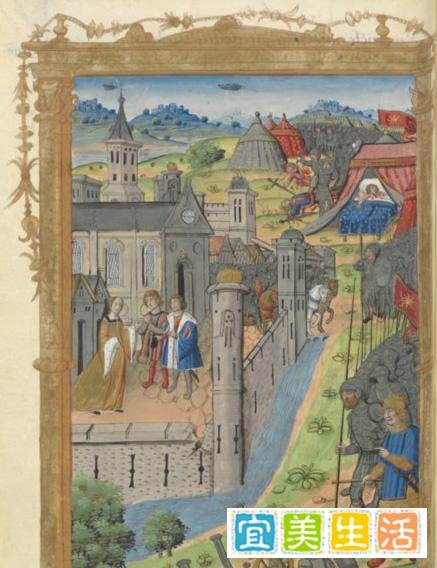 宜美生活